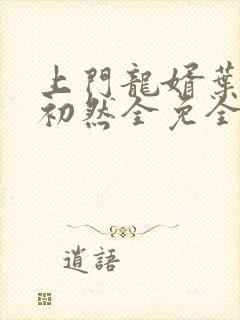 上門龍婿葉
初然全免全
逍語